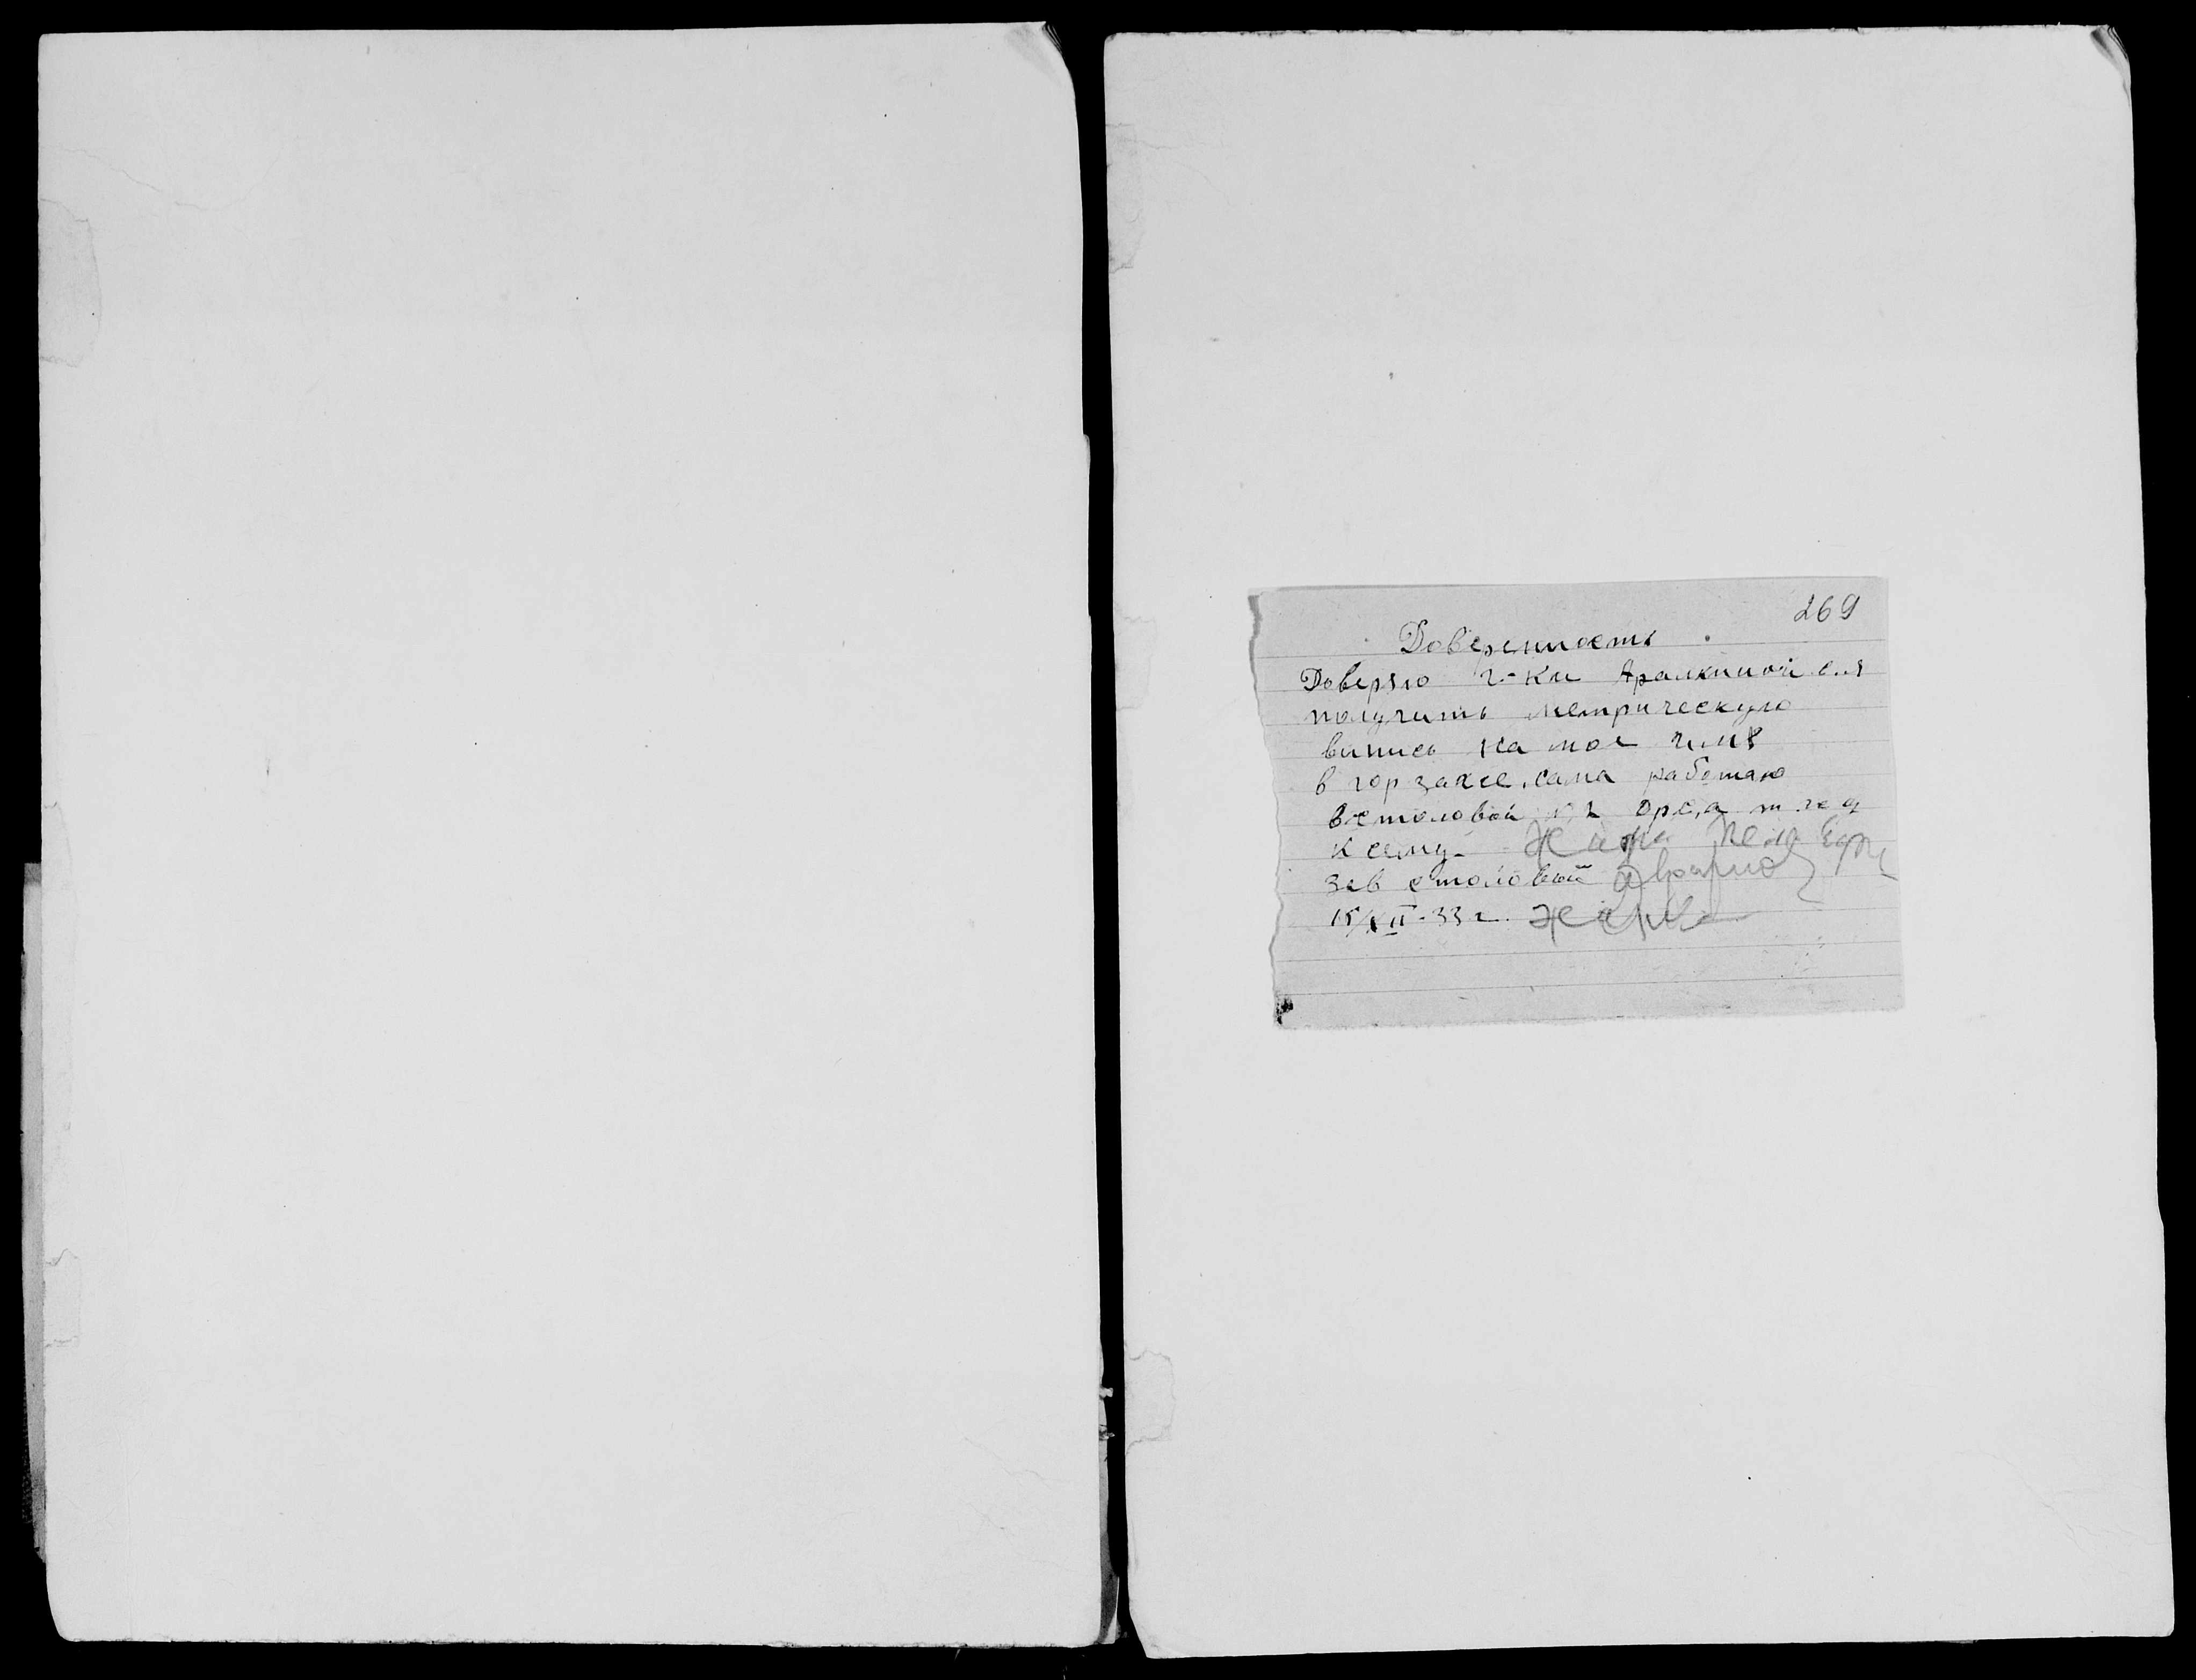 269
Доверенность
Доверяю г-ки Аралкиной
получить метрическую
випись на мое имя
в горзаксе. сама работаю
в столовой орса
к сему
зав столовый
15/XII-33 г.